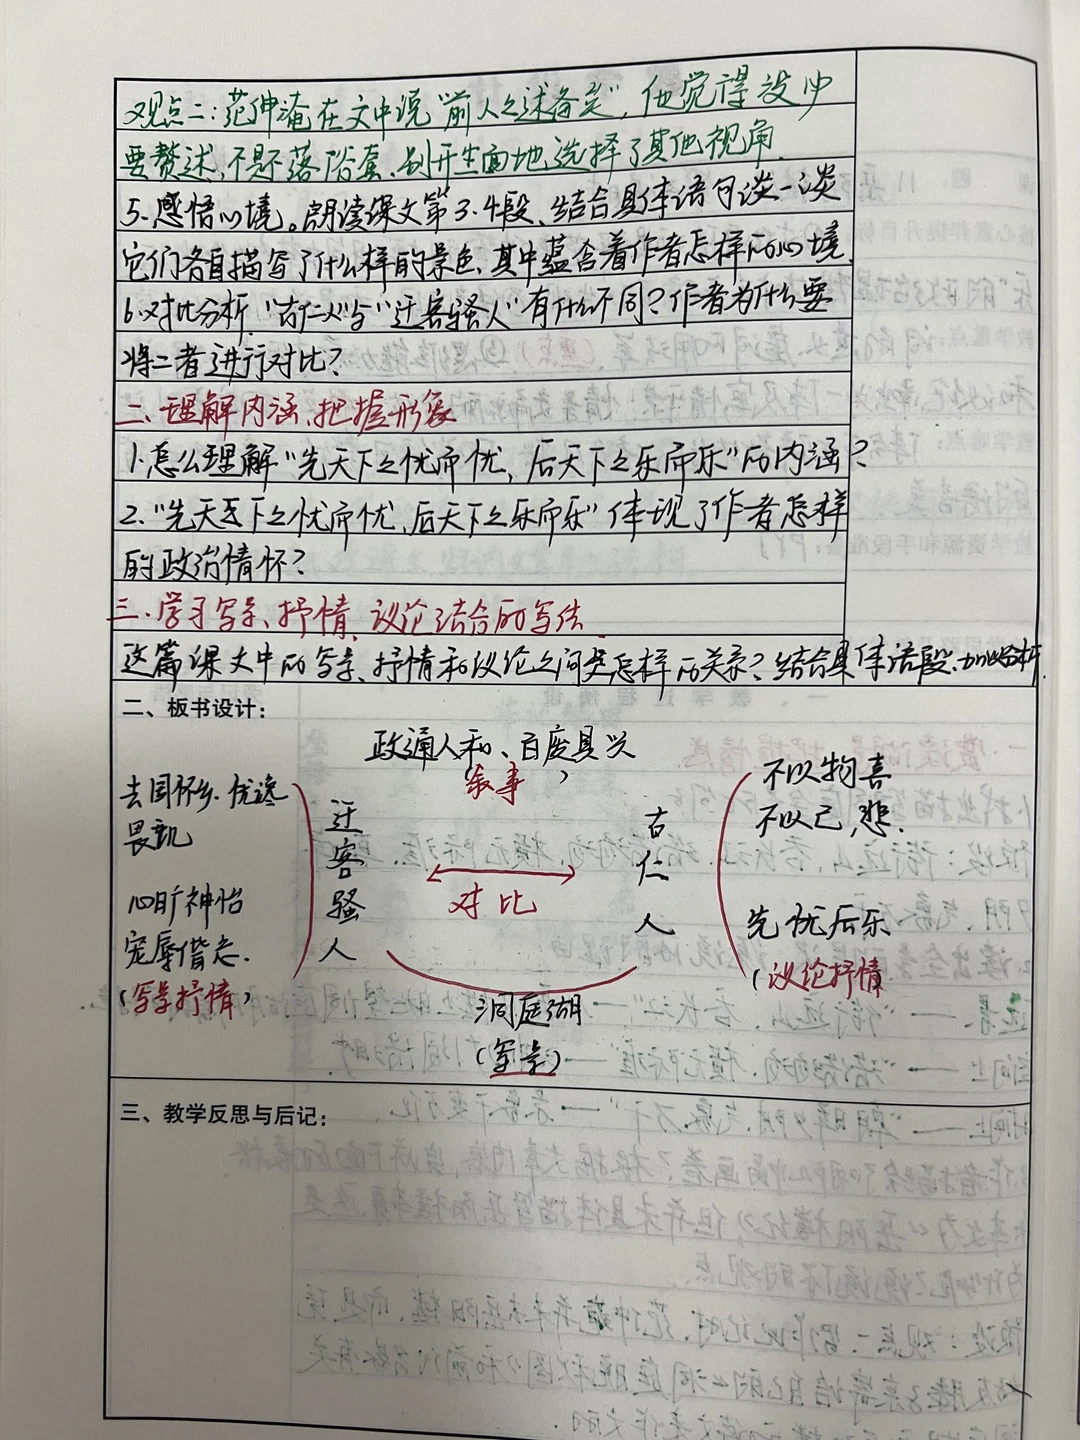 观点二：范仲淹在文中说"前人之述备矣"，他觉得没必
要赘述，不愿落俗套，别开生面地选择了其他视角.
5.感悟心境。朗读课文第3.4段、结合具体语句谈一谈
它们各自描写了什么样的景色，其中蕴含着作者怎样的心境.
6.对比分析."古仁人"与"迁客骚人"有什么不同？作者为什么要
将二者进行对比？
二、理解内涵、把握形象
1.怎么理解"先天下之忧而忧，后天下之乐而乐"的内涵？
2."先天下之忧而忧，后天下之乐而乐"体现了作者怎样
的政治情怀？
三.学习写景、抒情、议论结合的写法.
这篇课文中的写景、抒情和议论之间是怎样的关系？结合具体语段.加以分析.
二、板书设计：
政通人和、百废具兴
(叙事)
去国怀乡.忧谗
畏讥
心旷神怡
宠辱偕忘.
(写景抒情)
迁客骚人
对比
古仁人
不以物喜
不以己悲.
先忧后乐
(议论抒情
洞庭湖
(写景)
三、教学反思与后记：